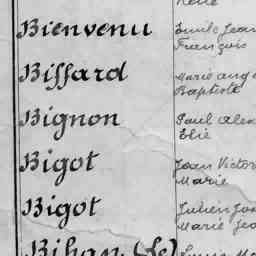 René
Bienvenu Emile Jean
François
Biffard Marie Ang
Baptiste
Bignon Paul Alex
Elie
Bigot Jean Victor
Marie
Bigot Julien Jos
Marie Jea
Bihan (Le) Louis Ma